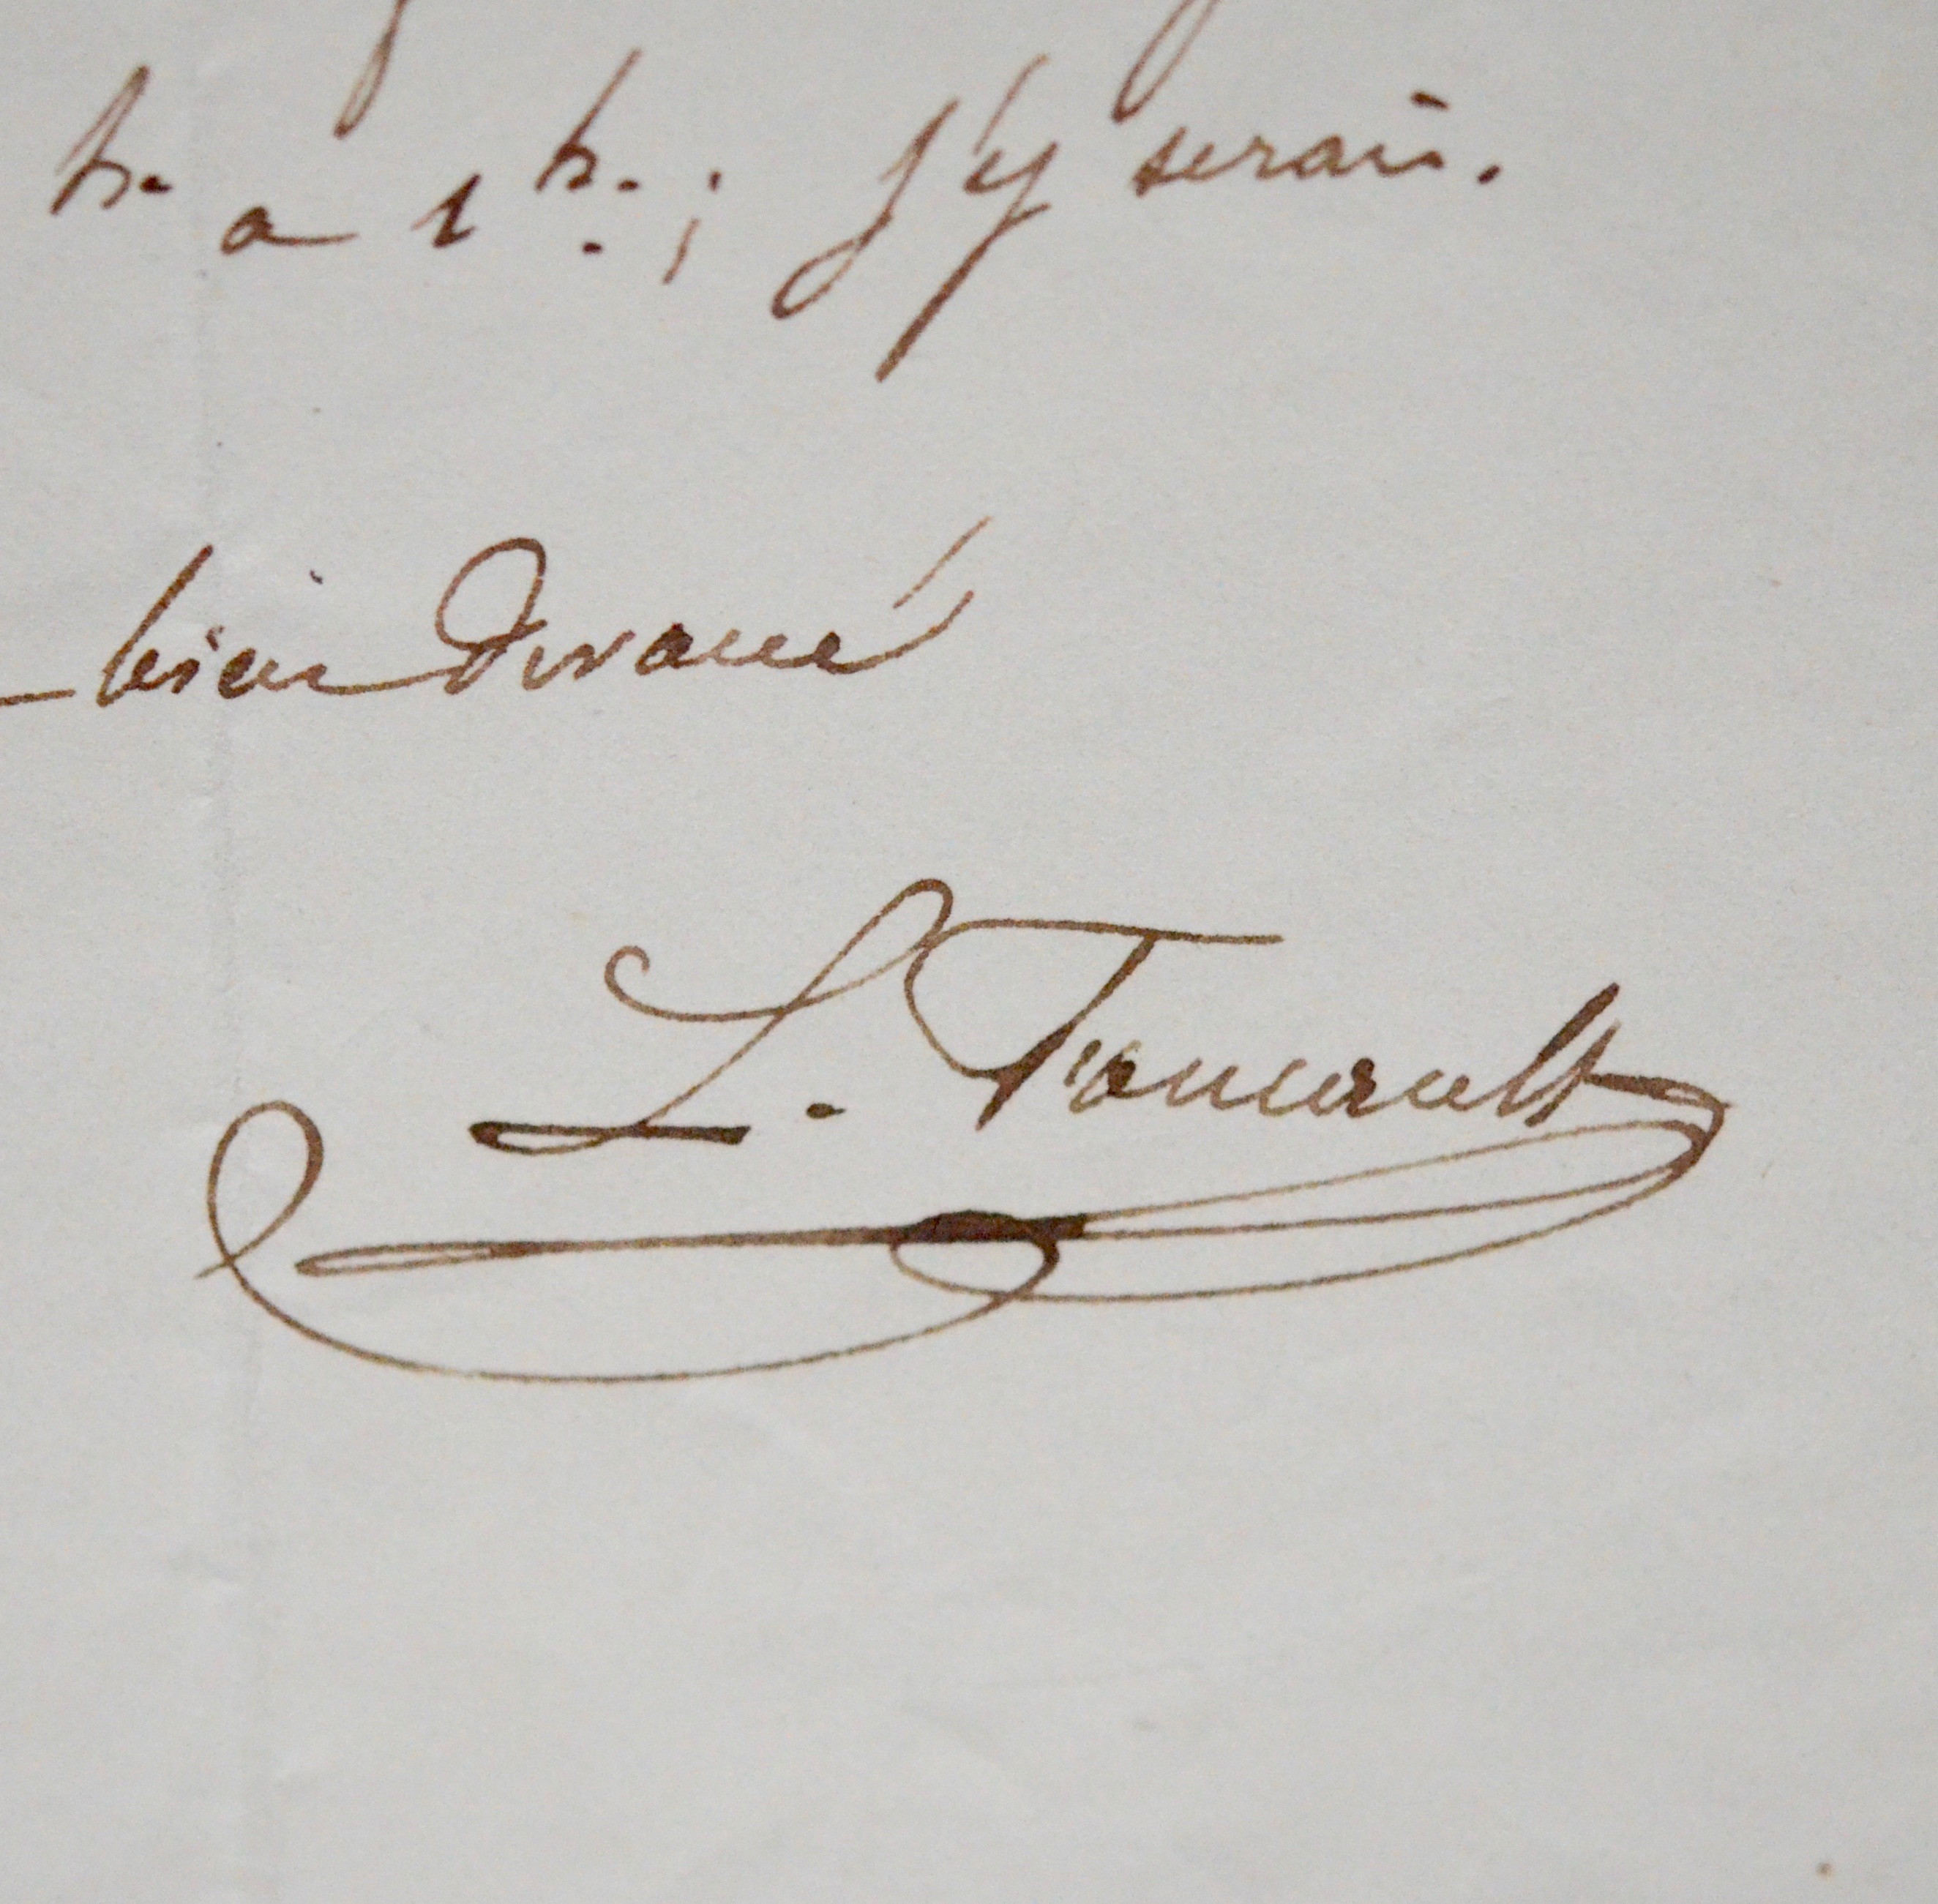 h. a 1 h. ; j'y serai.
bien dévoué
L. Foucault